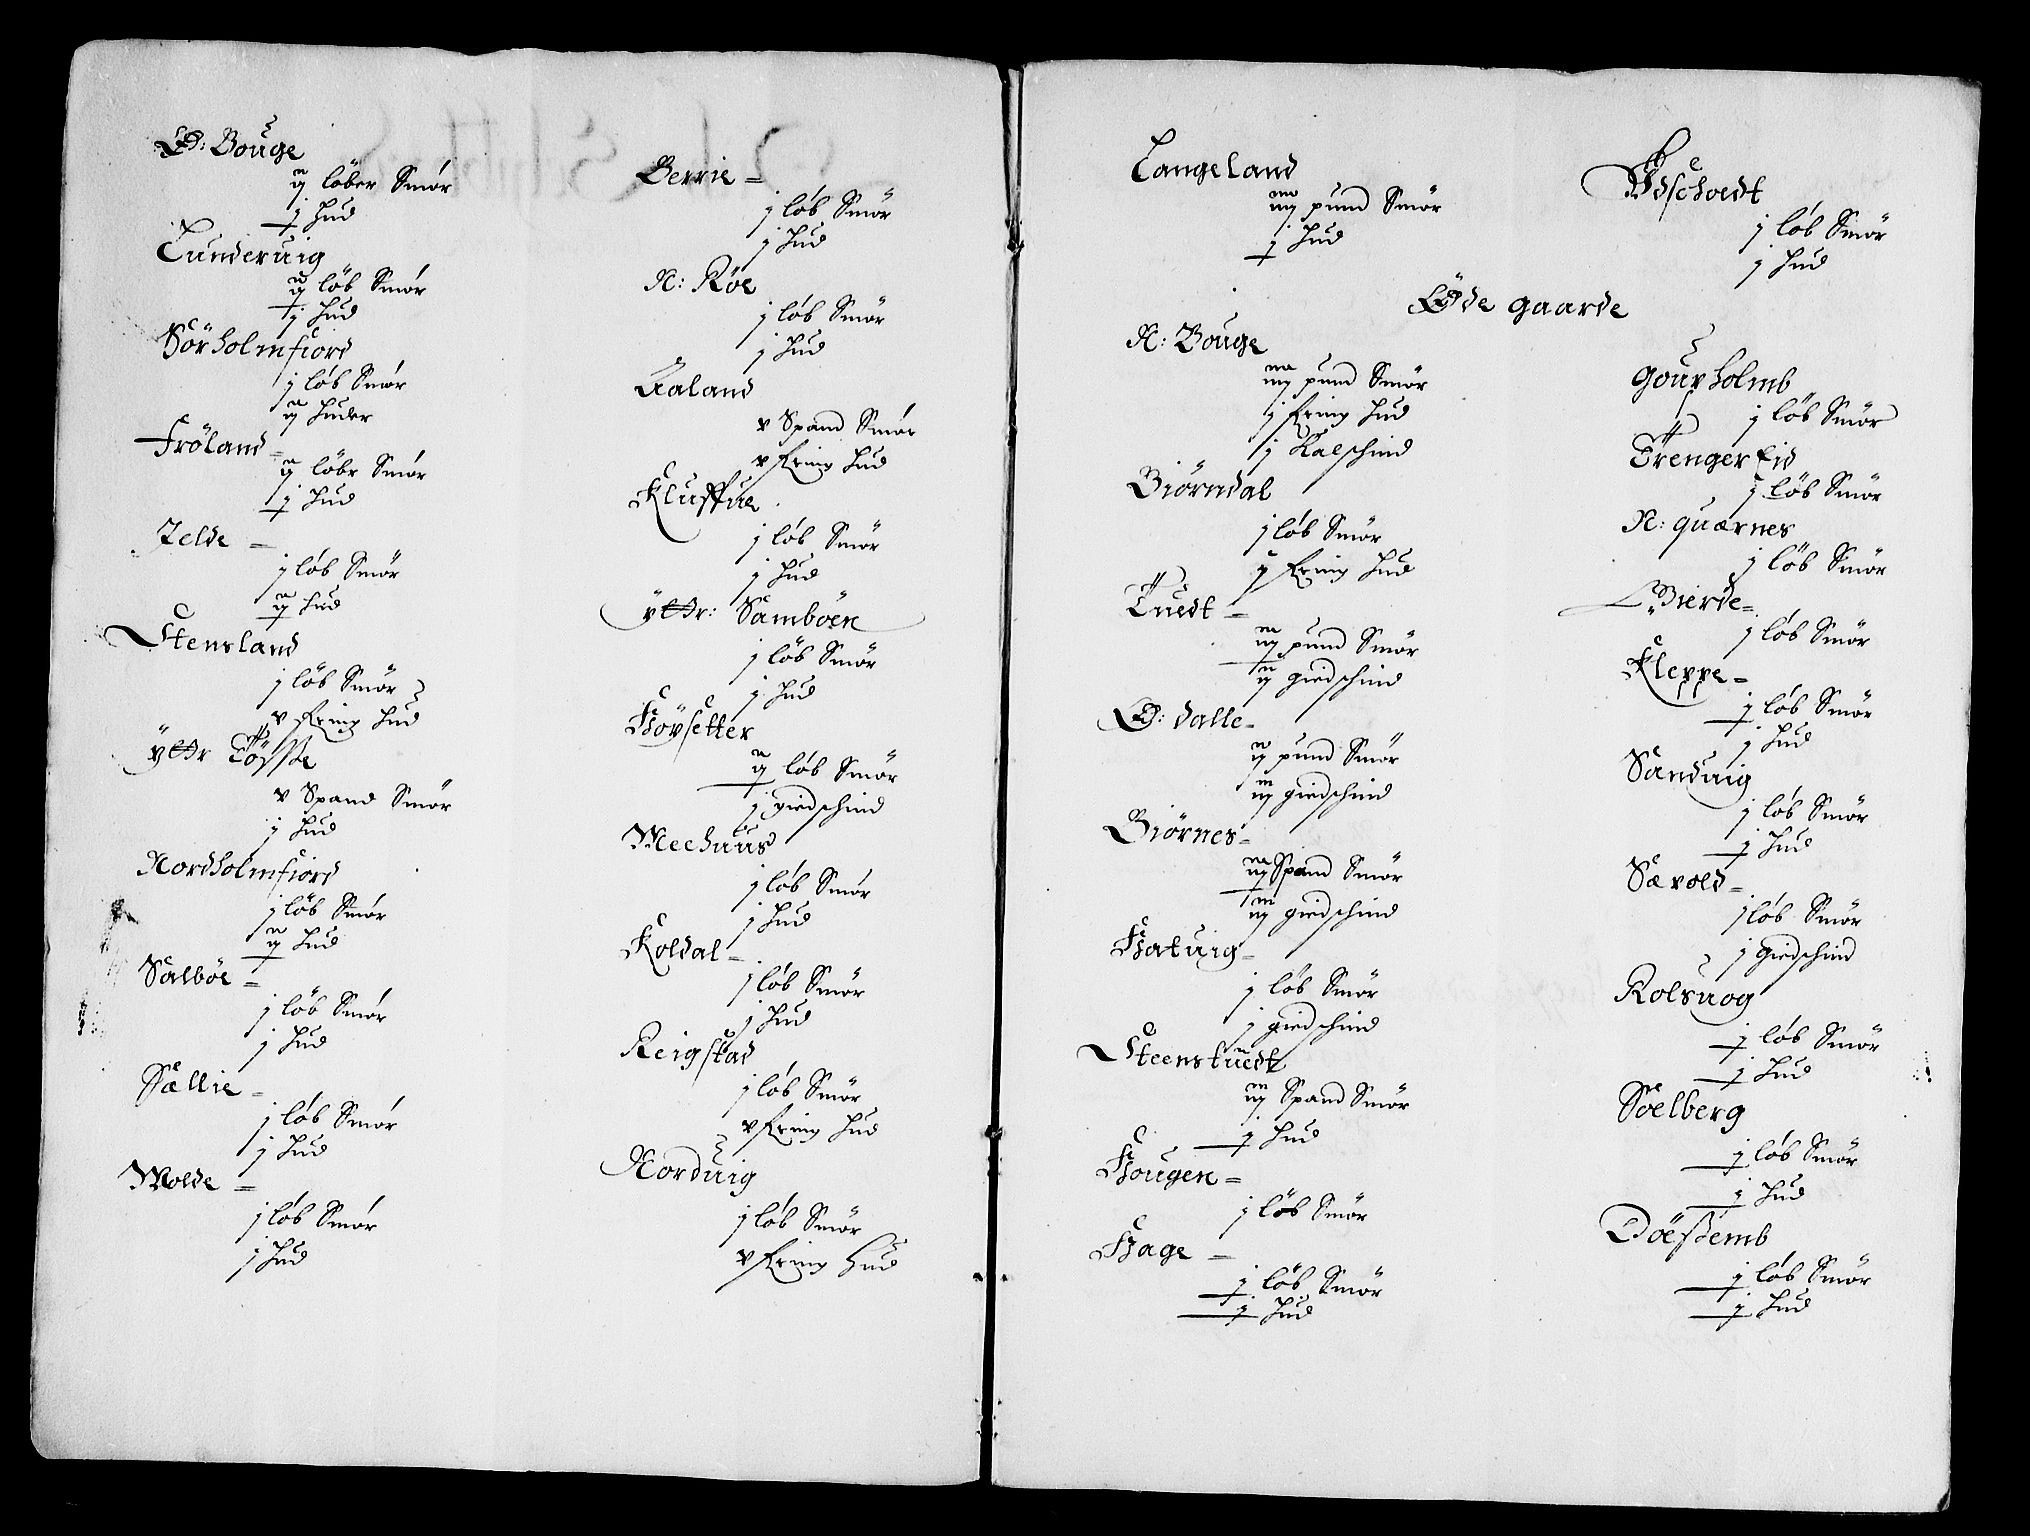 Ø: Bouge
ij löber Smör
j hud
Tunderuig
ij löb Smör
j hud
Sörholmfiord
j löb Smör
ij huder
Fröland =
ij löbr Smör
j hud
Jelde =
j löb Smör
ij hud
Stensland
j löb Smör
v fring hud
ytter Tösse
v Spand Smör
j hud
Nordholmfiord
j löb Smör
ij hud
Salböe =
j löb Smör
j hud
Sællie =
j löb Smör
j hud
Molde =
j löb Smör
j hud
Berrie =
j löb Smör
j hud
N: Röe
j löb Smör
j hud
Aaland
v Spand Smör
v fring hud
Kluffue
j löb Smör
j hud
ytter: Samböen
j löb Smör
j hud
Höysetter
ij löb Smör
j giedschind
Meehuus
j löb Smör
j hud
Koldal =
j löb Smör
j hud
Reigstad
j löb Smör
v fring hud
Norduig
j löb Smör
v fring hud
Langeland
iiij pund Smör
j hud
Ödschoedt
j löb Smör
j hud
Øde gaarde
N: Bouge
iiij pund Smör
j fring hud
j Kalschind
Biörndal
j löb Smör
j fring hud
Tuedt =
iij pund Smör
ij giedschind
Ø: dalle =
ij pund Smör
iij giedschind
Biörnes =
iij Spand Smör
iij giedschind
Hatuig =
j löb Smör
j giedschind
Steenstuedt
iij Spand Smör
j hud
Hougen =
j löb Smör
Hage =
j löb Smör
j hud
gourholmb
j löb Smör
Trengereid
j löb Smör
N: quærnes
j löb Smör
Bierde =
j löb Smör
Kleppe =
j löb Smör
j hud
Sanduig
j löb Smör
j hud
Sævold =
j löb Smör
j giedschind
Rolsuog
j löb Smör
j hud
Soelberg
j löb Smör
j hud
Döessemb
j löb Smör
j hud